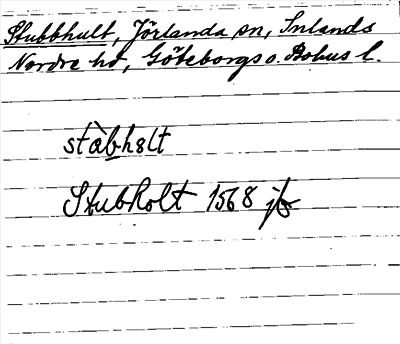 Stubbhult, Jörlanda sn, Inlands
Nordre hd, Göteborgs o. Bohus l.
stàbhɵlt
Stubholt 1568 jb